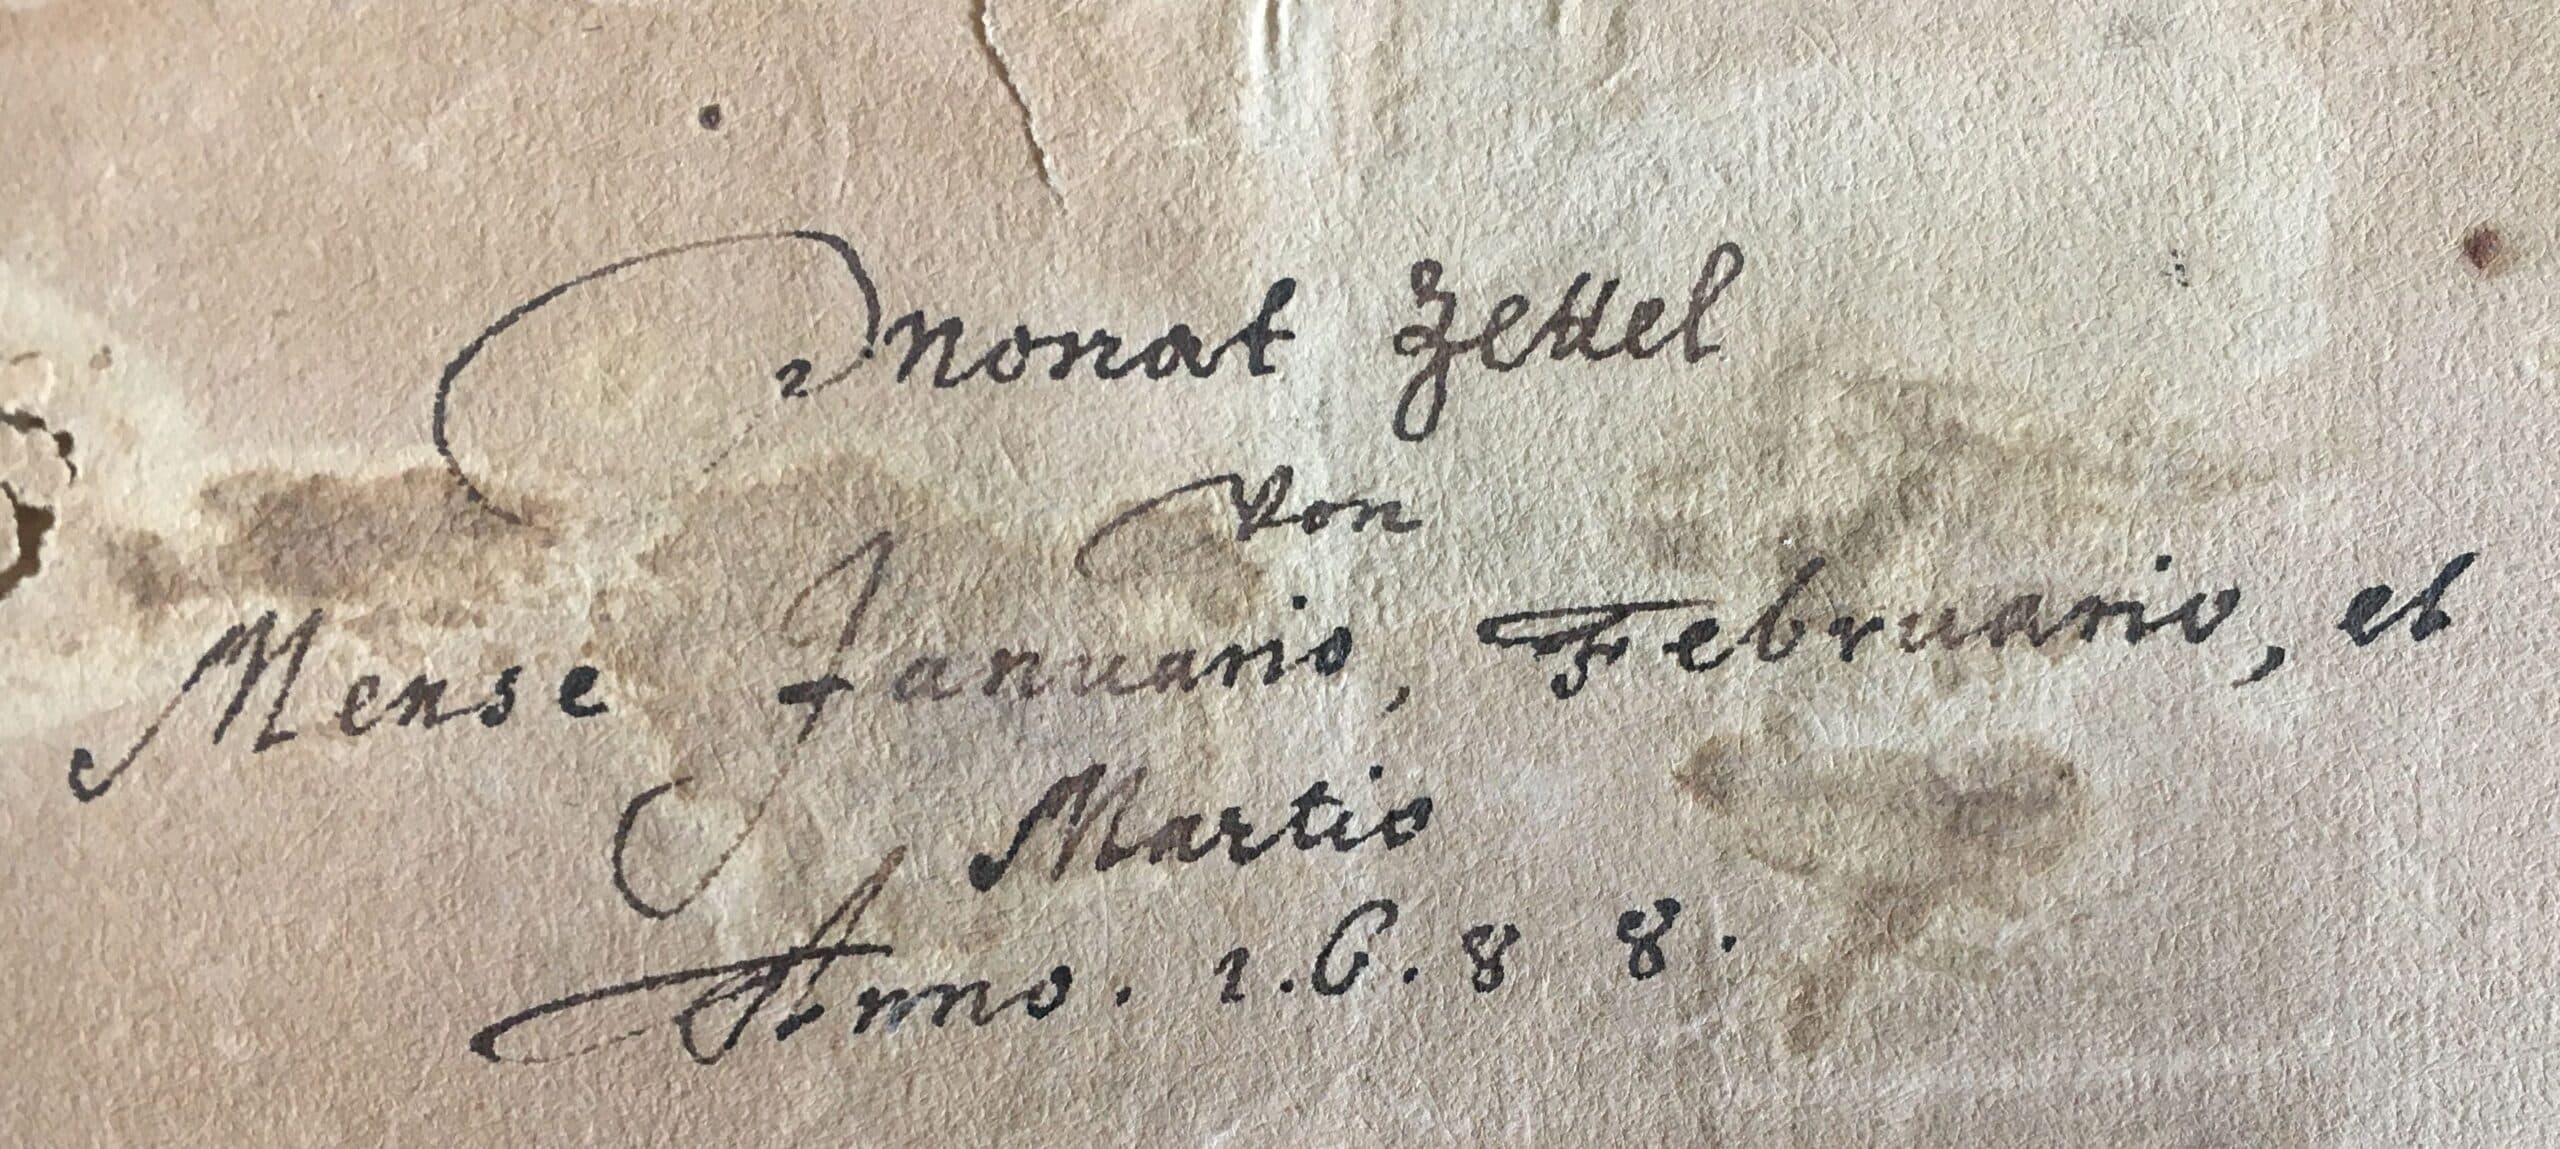 Monat Zettel
Von
Mense Januario, Februario, et
Martio
Anno. 1.6.8 8.